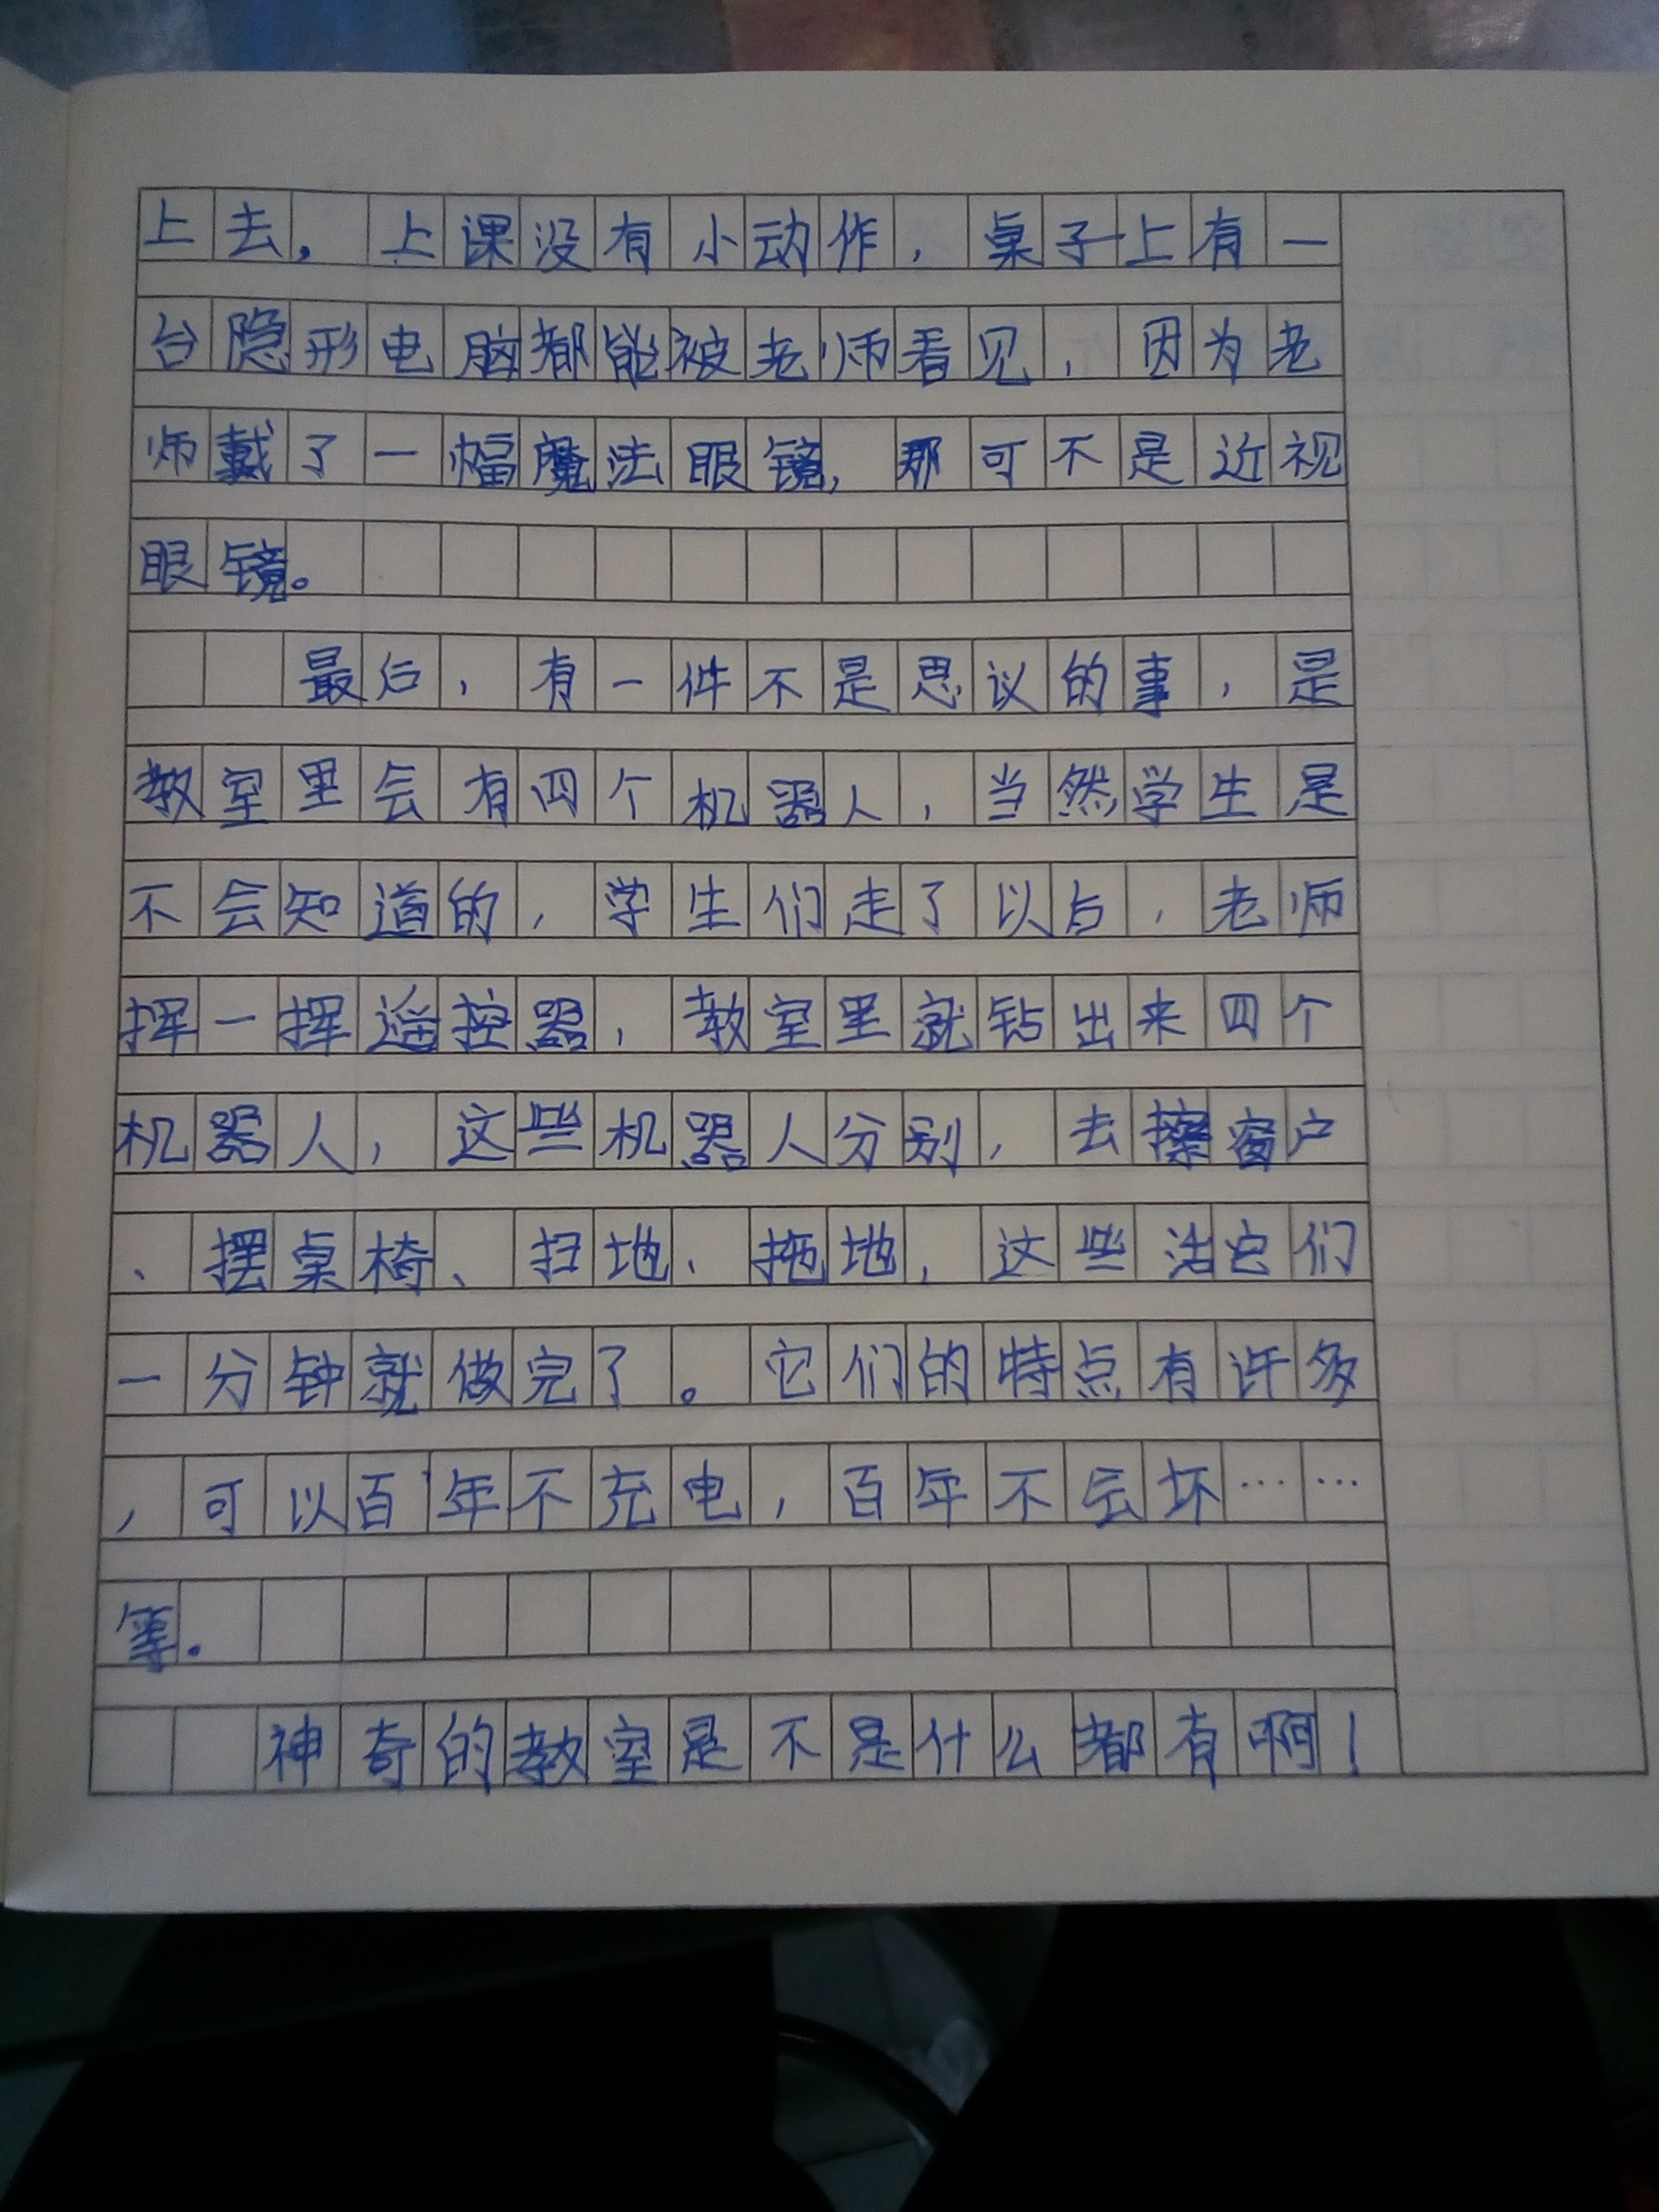 上去。上课没有小动作，桌子上有一
台隐形电脑都能被老师看见，因为老
师戴了一幅魔法眼镜，那可不是近视
眼镜。
最后，有一件不是思议的事，是
教室里会有四个机器人，当然学生是
不会知道的，学生们走了以后，老师
挥一挥遥控器，教室里就钻出来四个
机器人，这些机器人分别，去擦窗户
、摆桌椅、扫地、拖地，这些活它们
一分钟就做完了。它们的特点有许多
，可以百年不充电，百年不会坏……
等。
神奇的教室是不是什么都有啊！